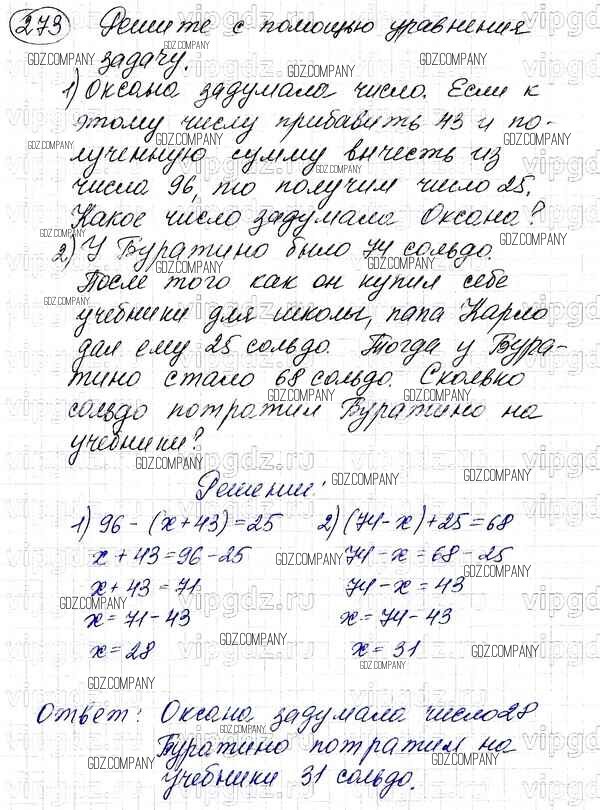 273 Решите с помощью уравнения
задачу.
1) Оксана задумала число. Если к
этому числу прибавить 43 и по-
лученную сумму вычесть из
числа 96, то получим число 25.
Какое число задумала Оксана?
2) У Буратино было 74 сольдо.
После того как он купил себе
учебники для школы, папа Карло
дал ему 25 сольдо. Тогда у Бура-
тино стало 68 сольдо. Сколько
сольдо потратил Буратино на
учебники?
Решение:
1) 96 - (x + 43) = 25
x + 43 = 96 - 25
x + 43 = 71
x = 71 - 43
x = 28
2) (74 - x) + 25 = 68
74 - x = 68 - 25
74 - x = 43
x = 74 - 43
x = 31
Ответ: Оксана задумала число 28
Буратино потратил на
учебники 31 сольдо.
GDZ.COMPANY
vipgdz.ru